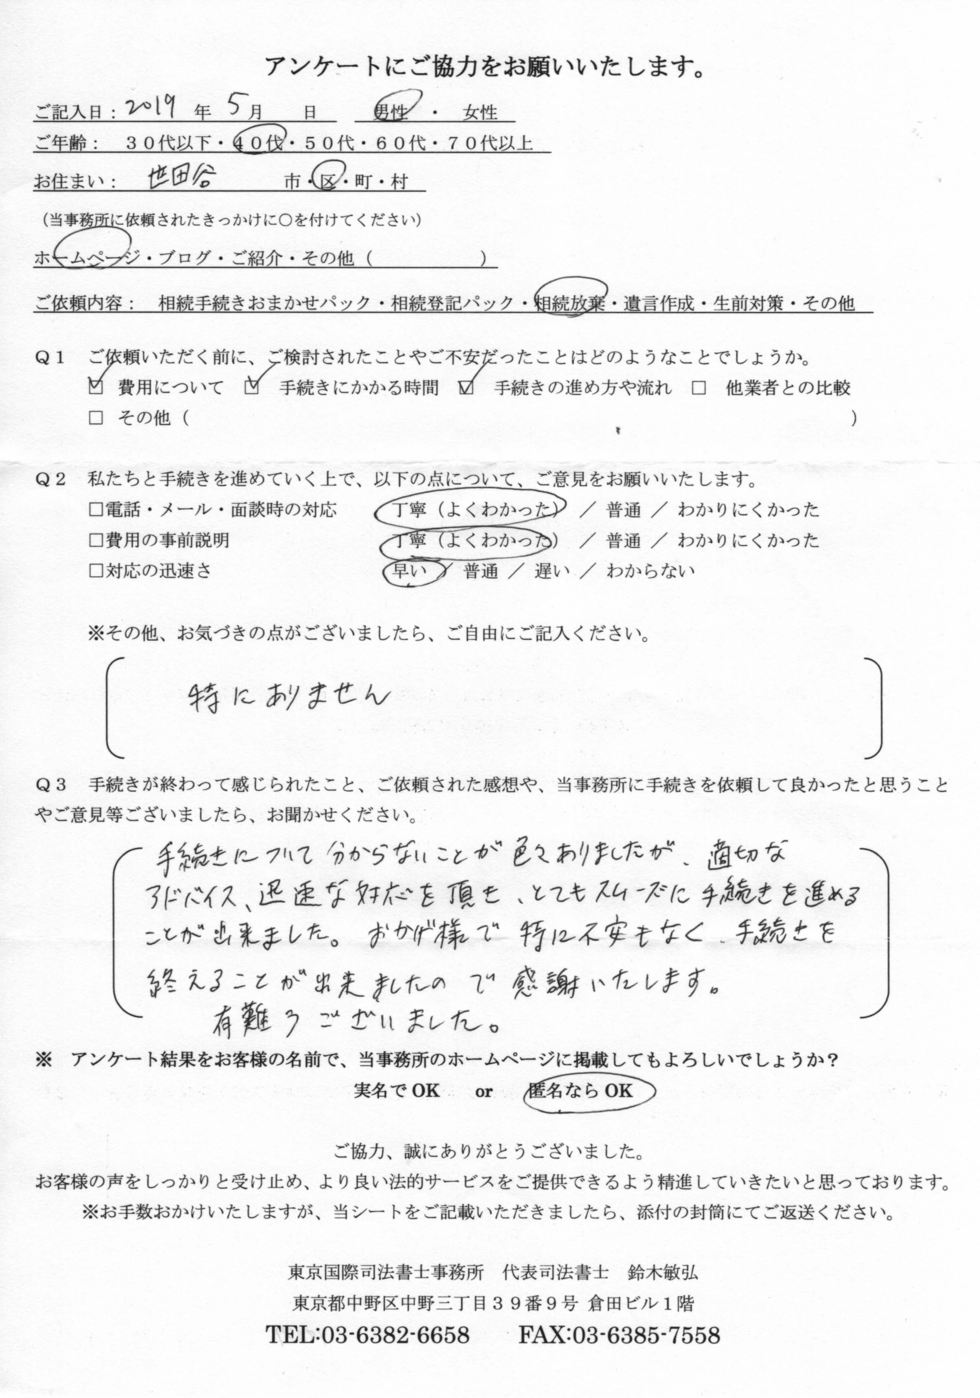 アンケートにご協力をお願いいたします。
ご記入日：2019 年 5月　　日　男性　・　女性
ご年齢：　３０代以下・４０代・５０代・６０代・７０代以上
お住まい：　世田谷　　市・区・町・村
（当事務所に依頼されたきっかけに○を付けてください）
ホームページ・ブログ・ご紹介・その他（　　　　　　）
ご依頼内容：　相続手続きおまかせパック・相続登記パック・相続放棄・遺言作成・生前対策・その他
Ｑ１　ご依頼いただく前に、ご検討されたことやご不安だったことはどのようなことでしょうか。
☑ 費用について　☑ 手続きにかかる時間　☑ 手続きの進め方や流れ　□ 他業者との比較
□ その他（　　　　　　　　　　　　　　　　　　　　　　　　　　　）
Ｑ２　私たちと手続きを進めていく上で、以下の点について、ご意見をお願いいたします。
□電話・メール・面談時の対応　　丁寧（よくわかった）　／　普通　／　わかりにくかった
□費用の事前説明　　丁寧（よくわかった）　／　普通　／　わかりにくかった
□対応の迅速さ　　早い　／　普通　／　遅い　／　わからない
※その他、お気づきの点がございましたら、ご自由にご記入ください。
特にありません
Ｑ３　手続きが終わって感じられたこと、ご依頼された感想や、当事務所に手続きを依頼して良かったと思うこと
やご意見等ございましたら、お聞かせください。
手続きについて分からないことが色々ありましたが、適切な
アドバイス、迅速な対応を頂き、とてもスムーズに手続きを進める
ことが出来ました。おかげ様で特に不安もなく、手続きを
終えることが出来ましたので感謝いたします。
有難うございました。
※　アンケート結果をお客様の名前で、当事務所のホームページに掲載してもよろしいでしょうか？
実名でOK　　or　　匿名ならOK
ご協力、誠にありがとうございました。
お客様の声をしっかりと受け止め、より良い法的サービスをご提供できるよう精進していきたいと思っております。
※お手数おかけいたしますが、当シートをご記載いただきましたら、添付の封筒にてご返送ください。
東京国際司法書士事務所　代表司法書士　鈴木敏弘
東京都中野区中野三丁目３９番９号 倉田ビル１階
TEL:03-6382-6658　　FAX:03-6385-7558